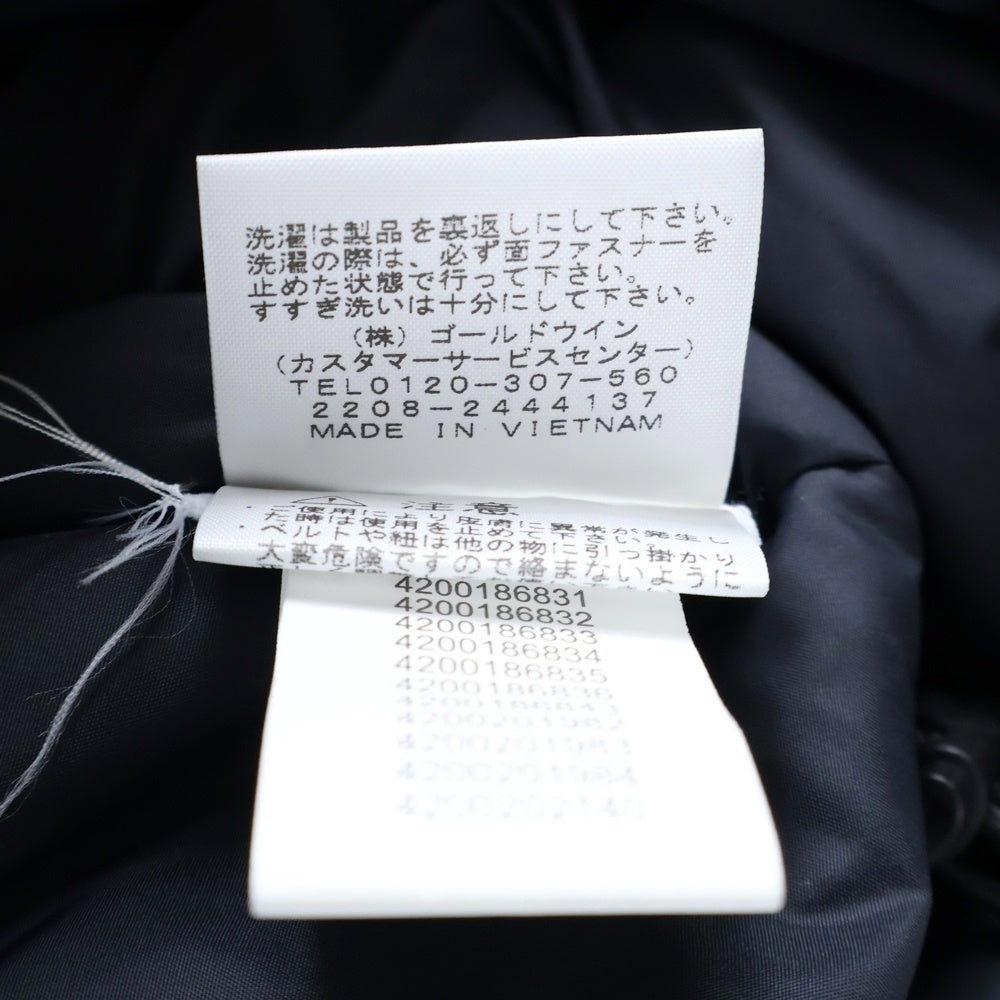 洗濯は製品を裏返しにして下さい。
洗濯の際は、必ず面ファスナーを
止めた状態で行って下さい。
すすぎ洗いは十分にして下さい。
(株)ゴールドウイン
(カスタマーサービスセンター)
TEL0120-307-560
2208-2444137
MADE IN VIETNAM
注意
ご使用により皮膚に異常が発生し
た時は使用を止めて下さい。
ベルトや紐は他の物に引っ掛かり
大変危険ですので絡まないように
4200186831
4200186832
4200186833
4200186834
4200186835
4200186836
4200186843
4200201982
4200201983
4200201984
4200202140